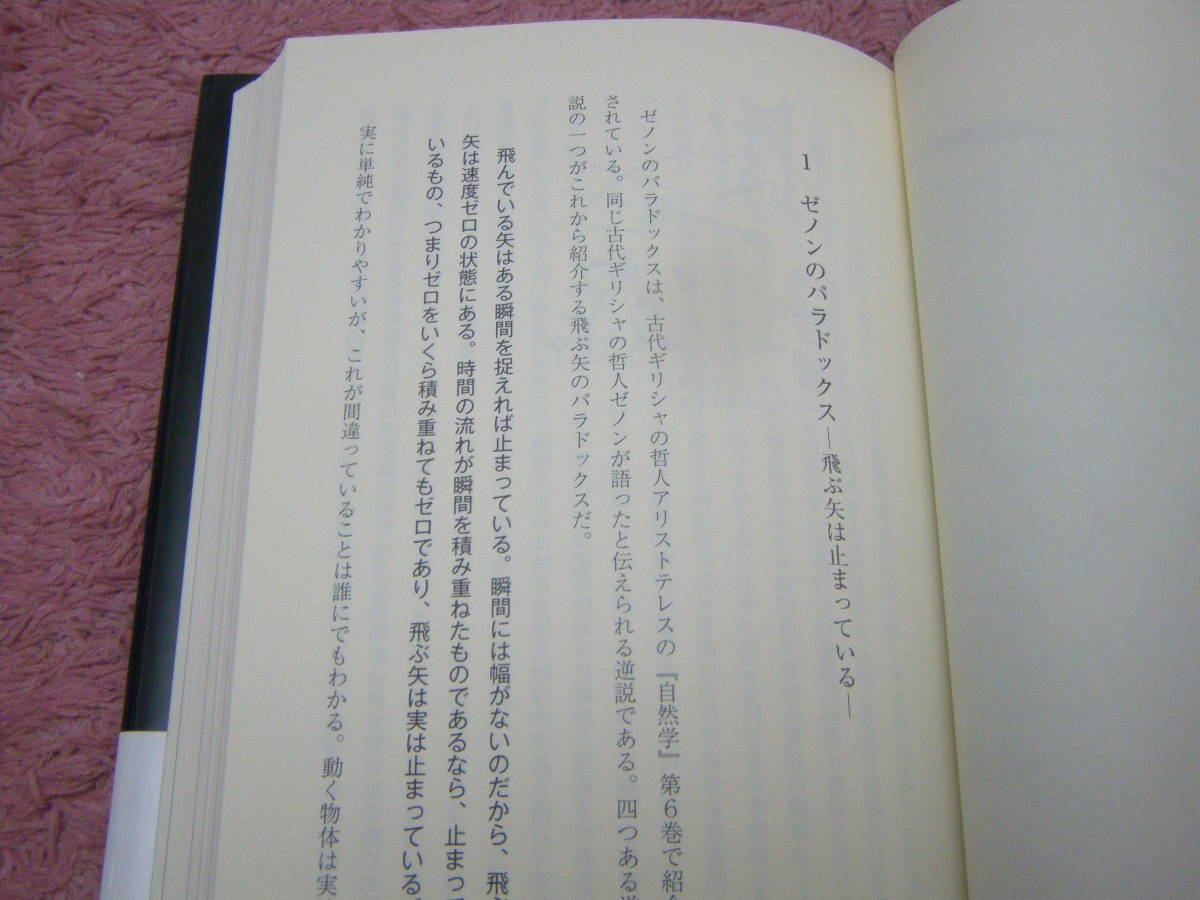 1 ゼノンのパラドックス―飛ぶ矢は止まっている―
ゼノンのパラドックスは、古代ギリシャの哲人アリストテレスの『自然学』第6巻で紹
されている。同じ古代ギリシャの哲人ゼノンが語ったと伝えられる逆説である。四つある逆
説の一つがこれから紹介する飛ぶ矢のパラドックスだ。
飛んでいる矢はある瞬間を捉えれば止まっている。瞬間には幅がないのだから、飛ぶ
矢は速度ゼロの状態にある。時間の流れが瞬間を積み重ねたものであるなら、止まって
いるもの、つまりゼロをいくら積み重ねてもゼロであり、飛ぶ矢は実は止まっている。
実に単純でわかりやすいが、これが間違っていることは誰にでもわかる。動く物体は実